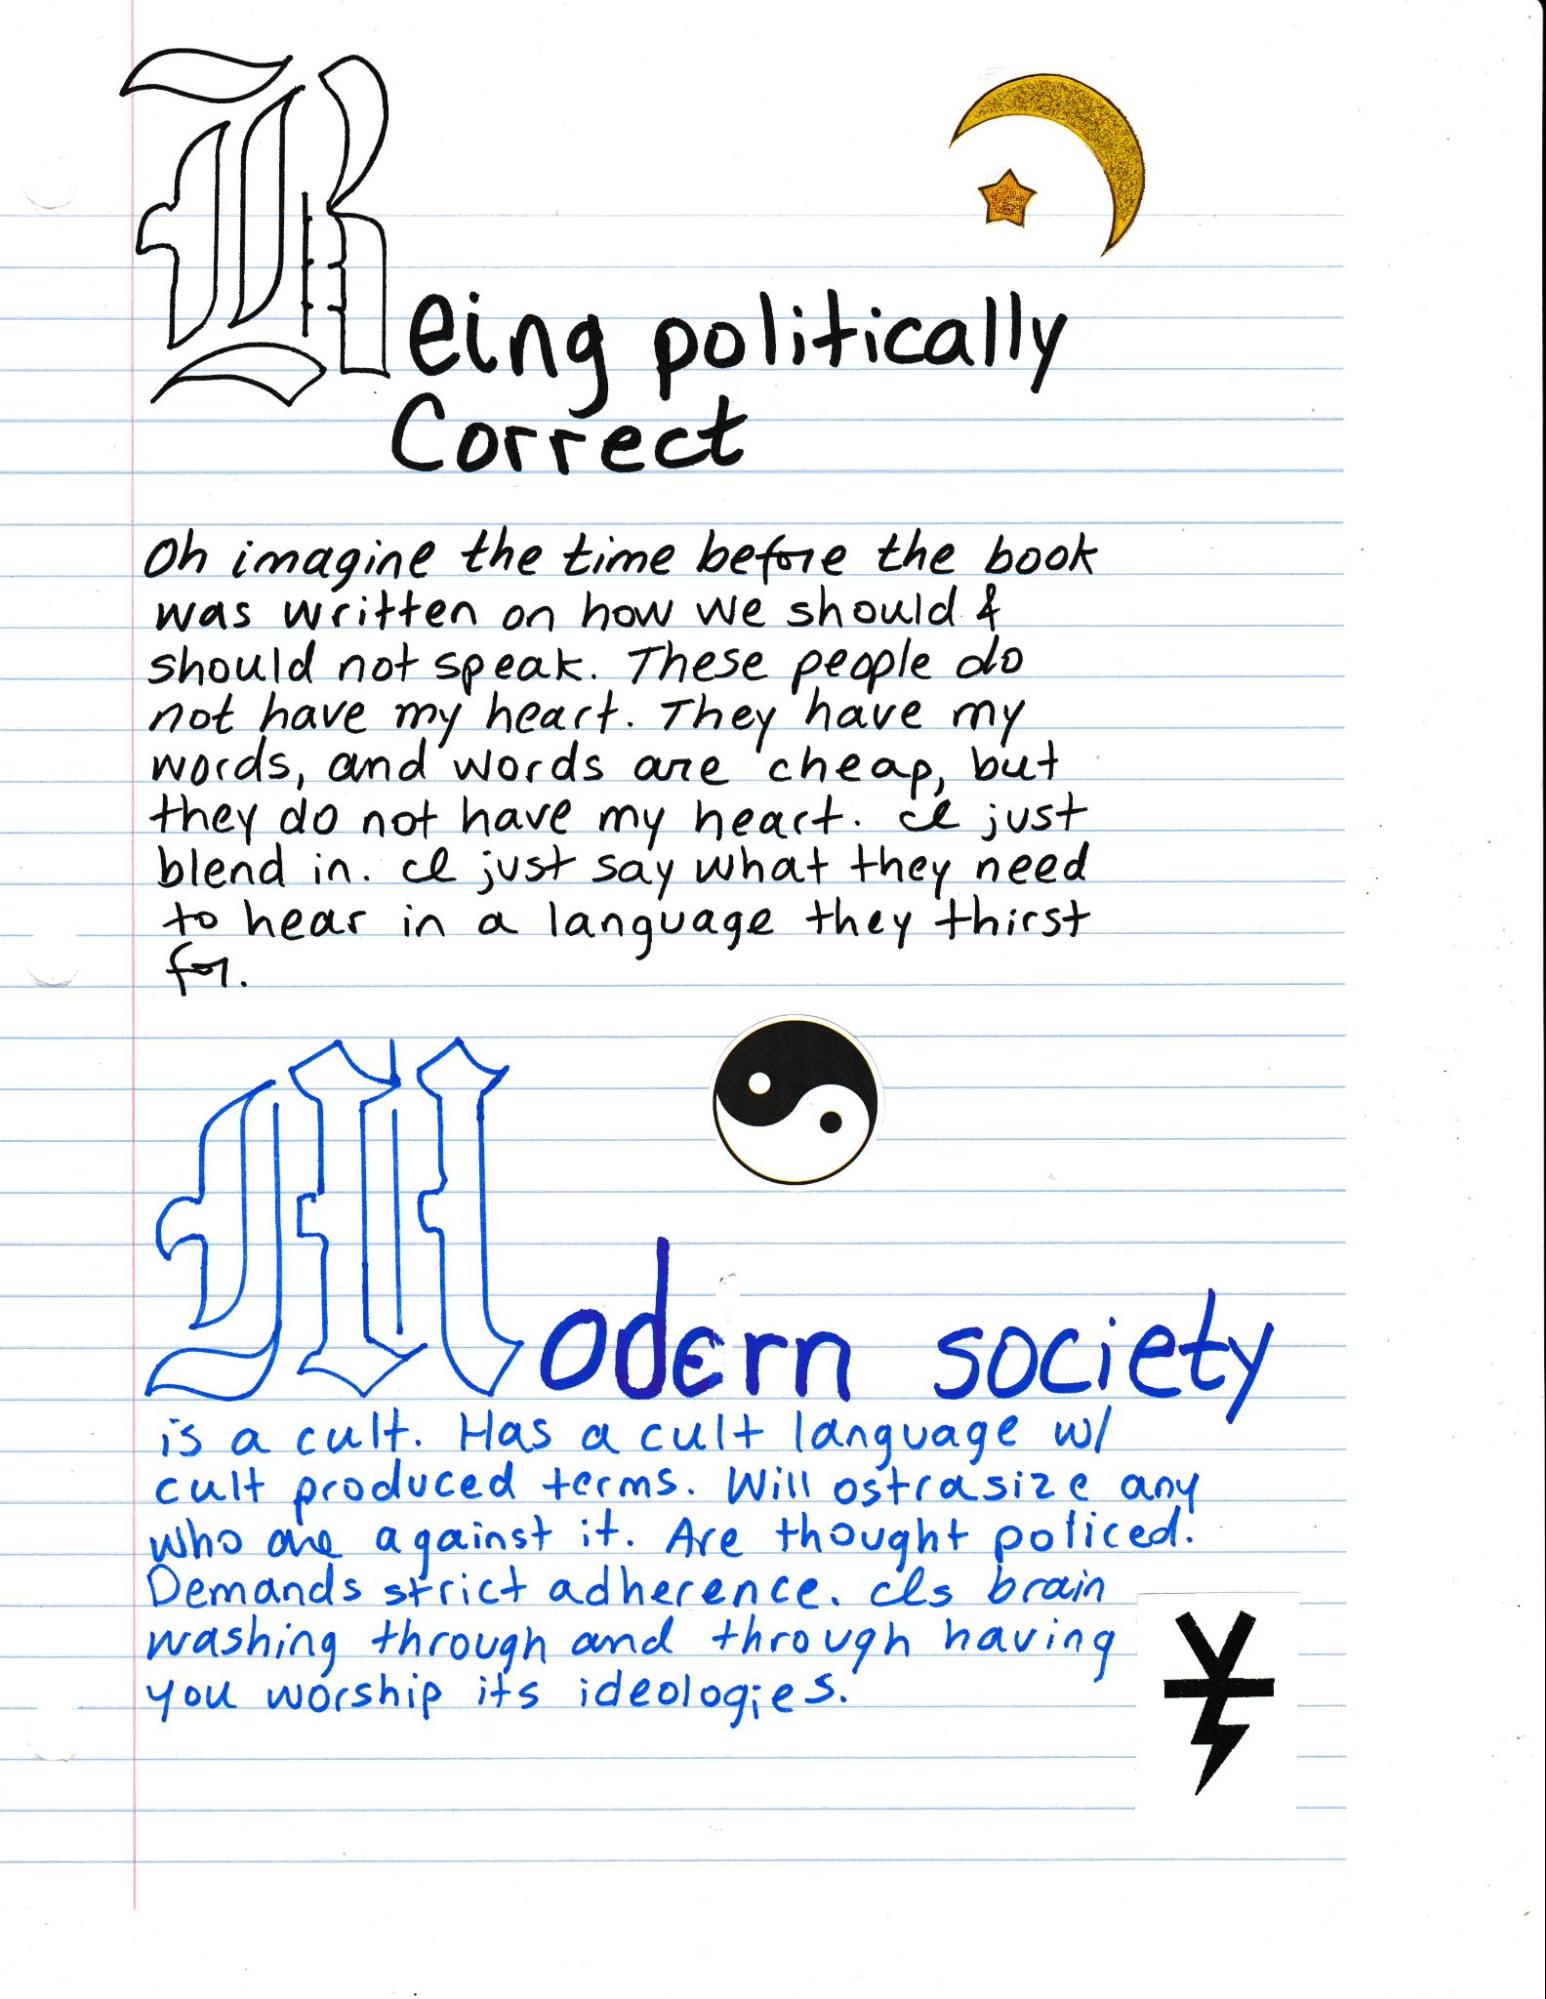 Being politically
Correct
Oh imagine the time before the book
was written on how we should &
should not speak. These people do
not have my heart. They have my
words, and words are cheap, but
they do not have my heart. I just
blend in. I just say what they need
to hear in a language they thirst
for.
Modern society
is a cult. Has a cult language w/
cult produced terms. Will ostrasize any
who are against it. Are thought policed.
Demands strict adherence. Is brain
washing through and through having
you worship its ideologies.